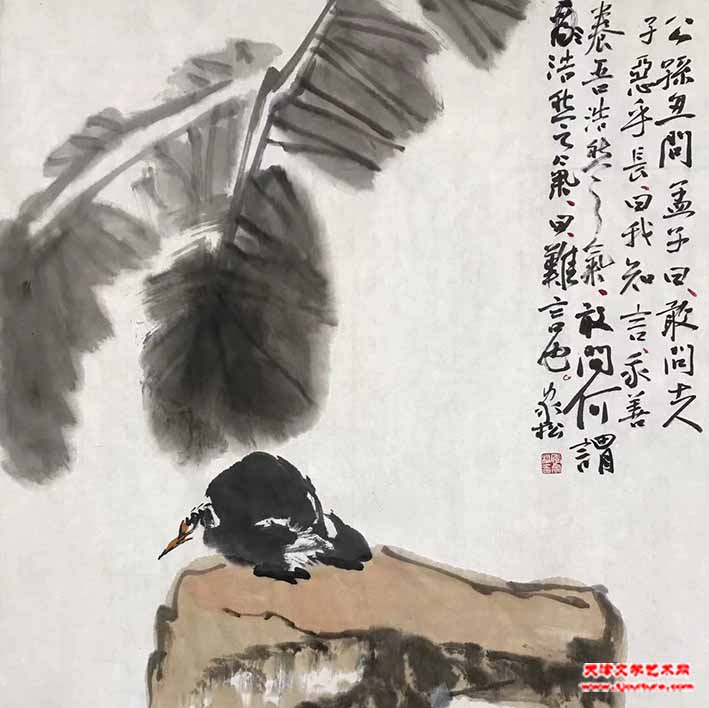 公孫丑問孟子曰、敢問夫
子惡乎長、曰我知言、我善
養吾浩然之氣、敢問何謂
浩然之氣、曰、難言也。家松
天津文学艺术网